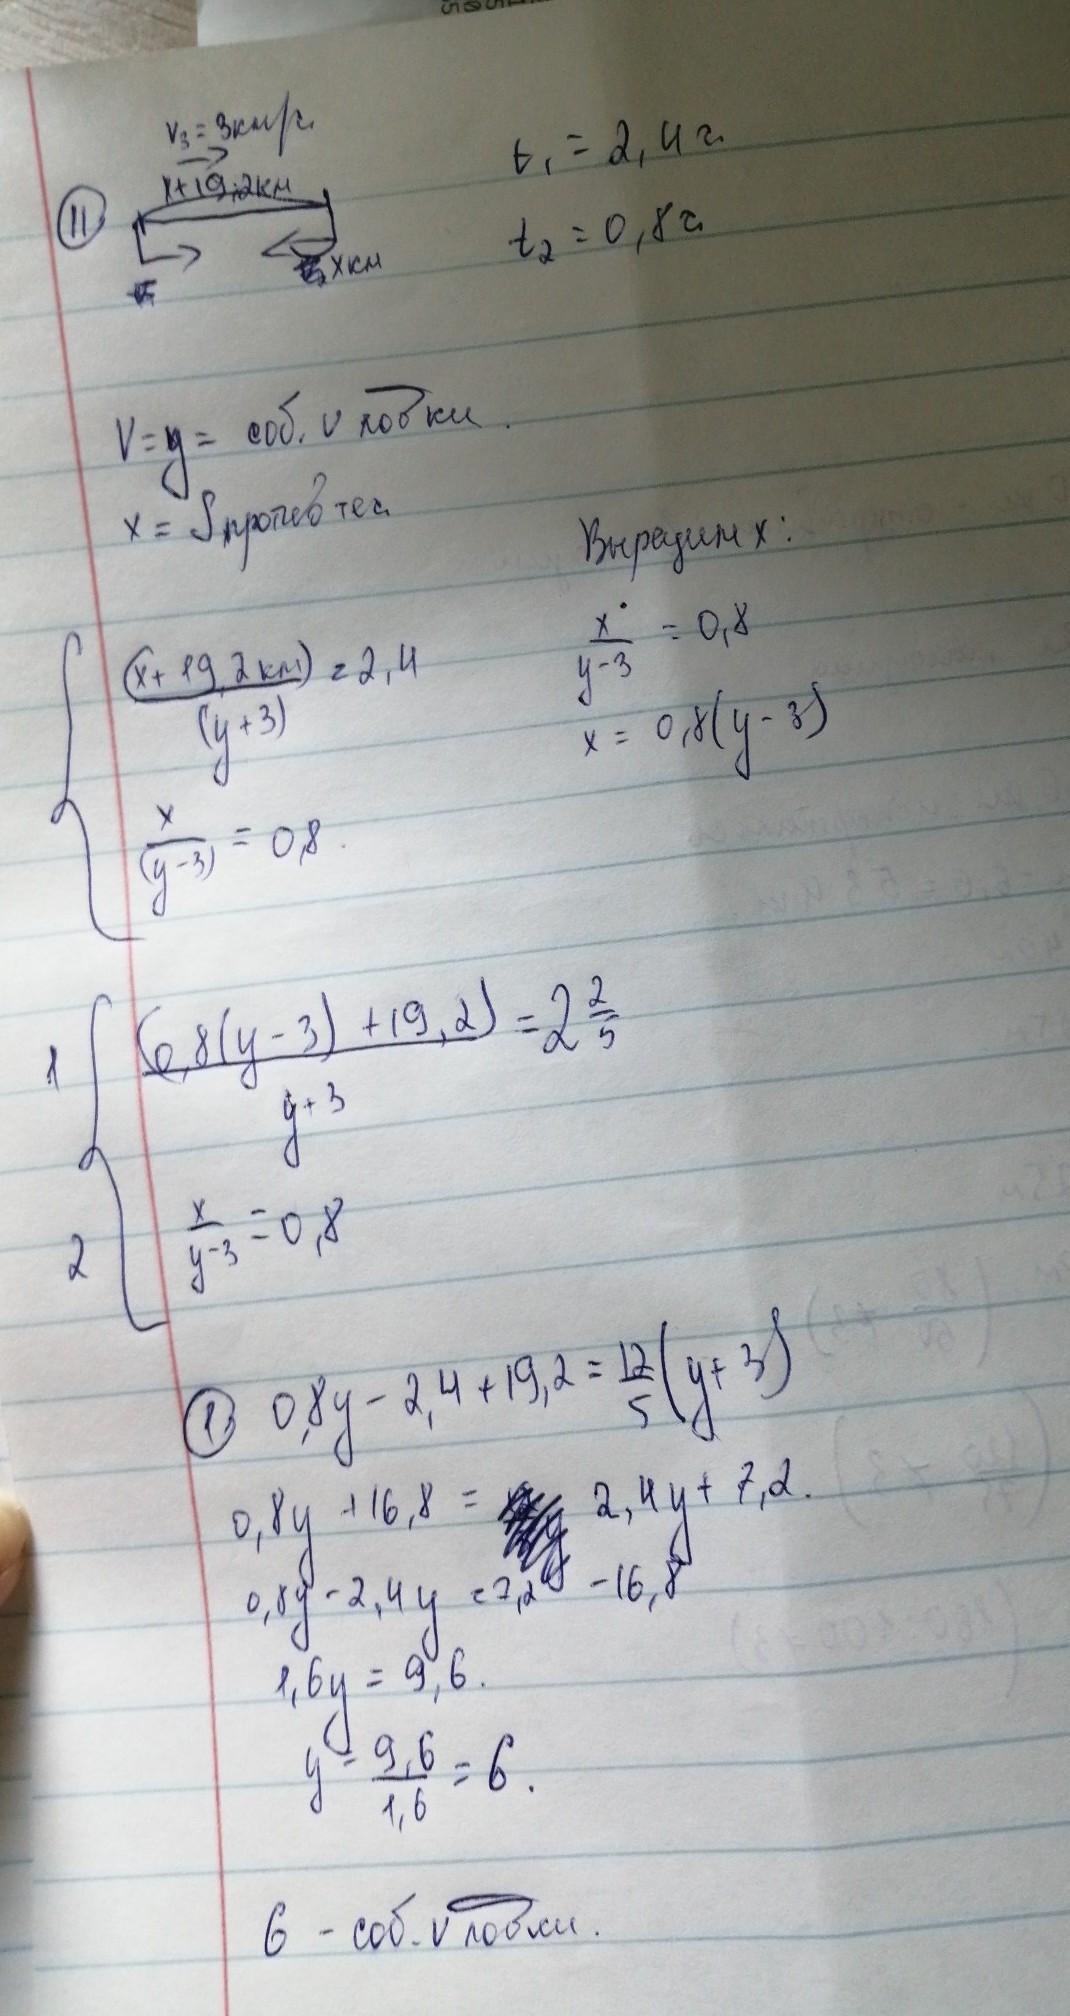 V₃ = 3км/ч.
x+19,2км
t₁ = 2,4 ч
11
t₂ = 0,8 ч
x км
V = y = соб. v лодки.
x = S против теч.
Выразим x:
(x + 19,2 км)/(y+3) = 2,4
x/(y-3) = 0,8
x = 0,8(y-3)
x/(y-3) = 0,8.
1 (0,8(y-3) + 19,2)/(y+3) = 2 2/5
2 x/(y-3) = 0,8
1) 0,8y - 2,4 + 19,2 = 12/5 (y+3)
0,8y + 16,8 = 2,4y + 7,2.
0,8y - 2,4y = 7,2 - 16,8
1,6y = 9,6.
y = 9,6/1,6 = 6.
6 - соб. v лодки.